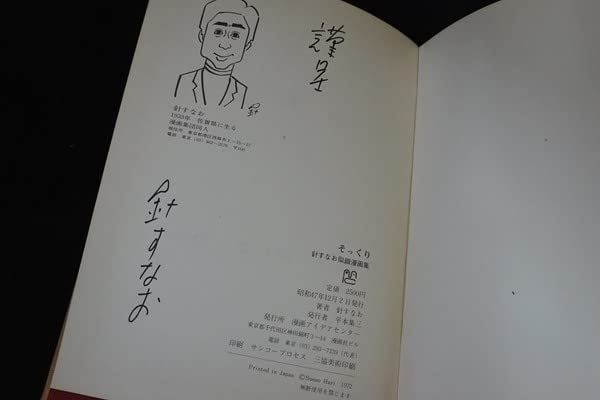 謹呈
針
針すなお
1933年 佐賀県に生る
漫画集団同人
針すなお
そっくり
針すなお似顔漫画集
定価 2500円
昭和47年12月2日発行
著者 針すなお
発行者 平本集三
発行所 漫画アイデアセンター
東京都千代田区神田錦町3-14 漫画社ビル
電話 東京(03)292-7239(代表)
印刷 サンコープロセス 三協美術印刷
Printed in Japan ©Sunao Hari 1972
無断使用を禁じます